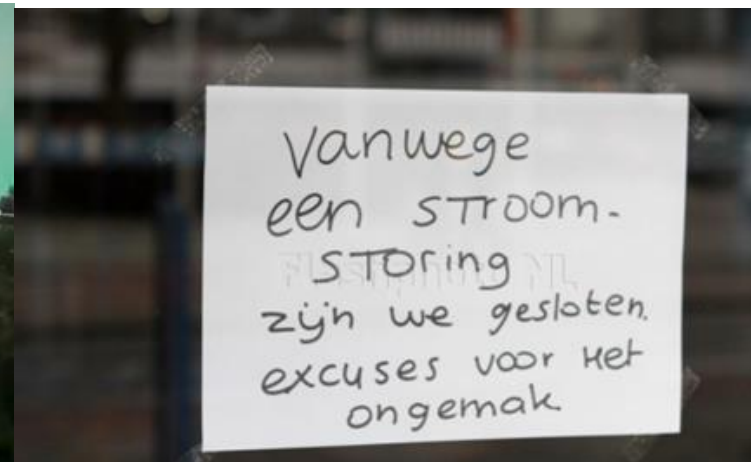 Vanwege
een stroom-
storing
zijn we gesloten.
excuses voor het
ongemak